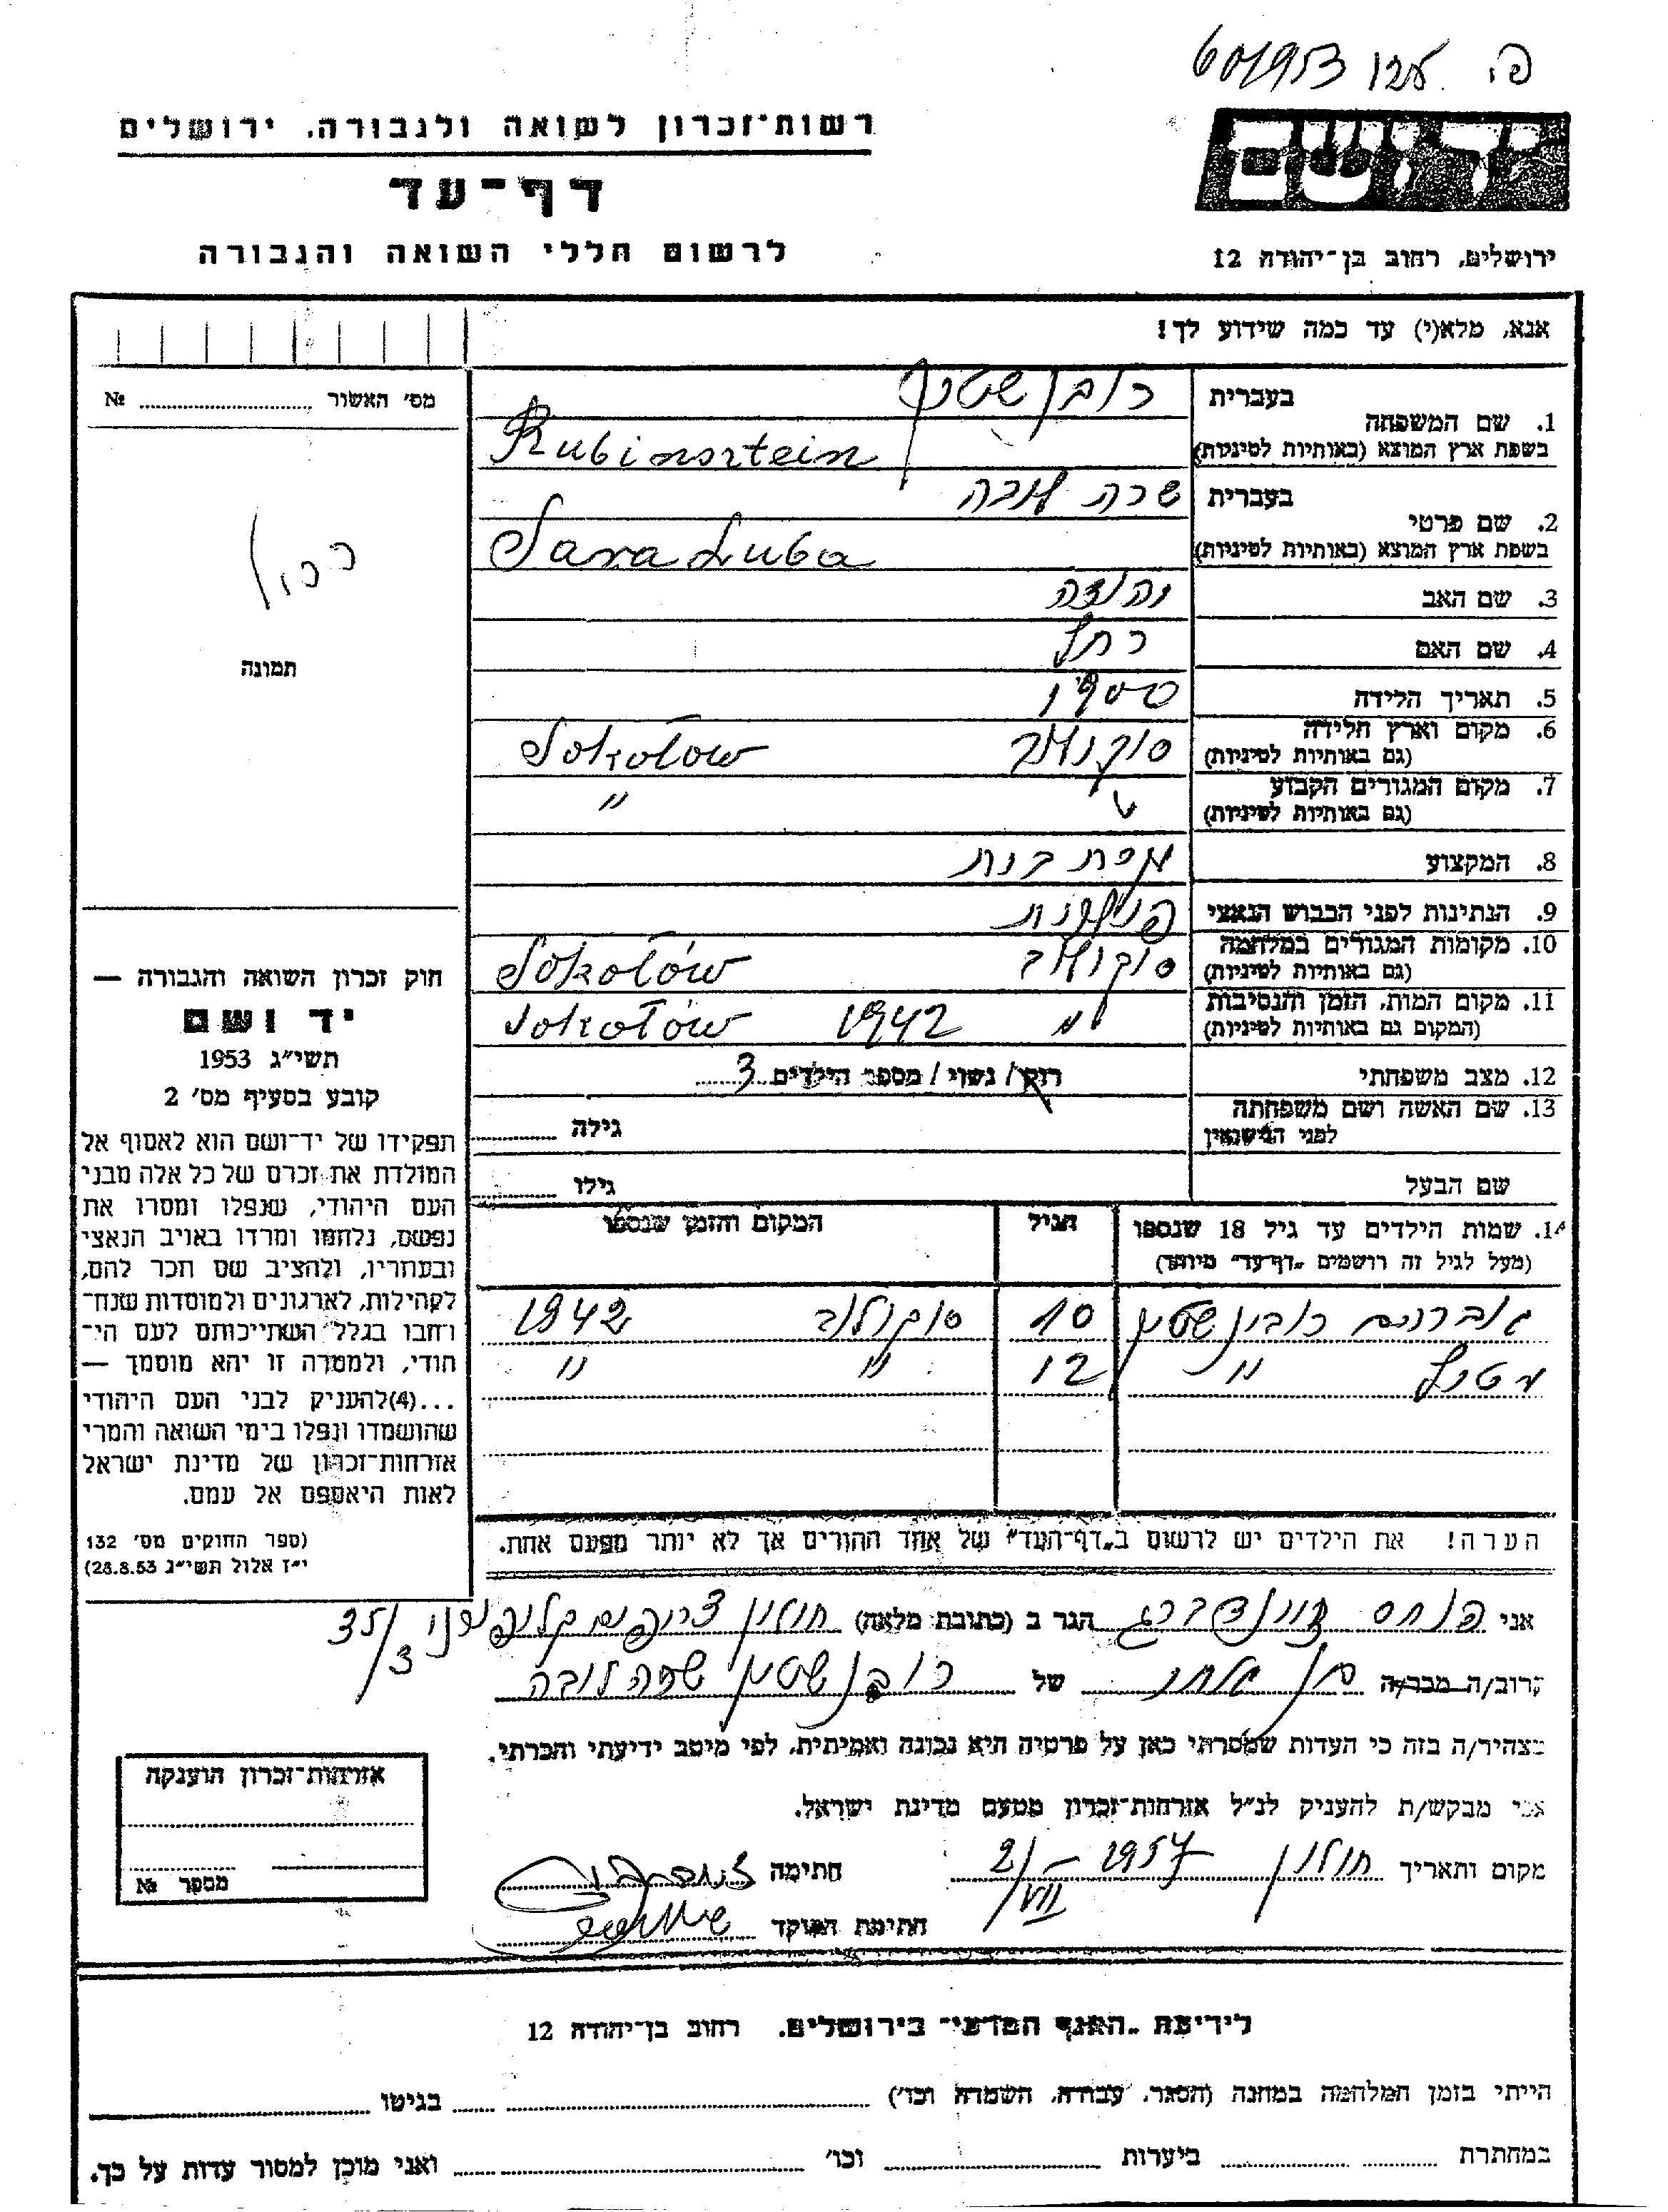 601953
יד ושם
רשות־זכרון לשואה ולגבורה, ירושלים
דף־עד
לרשום חללי השואה והגבורה
ירושלים, רחוב בן־יהודה 12
אנא, מלא(י) עד כמה שידוע לך!
מס' האשור № ..........
תמונה
1. שם המשפחה בעברית רובינשטיין
בשפת ארץ המוצא (באותיות לטיניות) Rubinsztein
2. שם פרטי בעברית שרה לובה
בשפת ארץ המוצא (באותיות לטיניות) Sara Luba
3. שם האב יהודה
4. שם האם רחל
5. תאריך הלידה 1900
6. מקום וארץ הלידה (גם באותיות לטיניות) סוקולוב Sokołow
7. מקום המגורים הקבוע (גם באותיות לטיניות) " "
8. המקצוע עקרת בית
9. הנתינות לפני הכבוש הנאצי פולנית
10. מקומות המגורים במלחמה (גם באותיות לטיניות) סוקולוב Sokołów
11. מקום המות, הזמן והנסיבות (המקום גם באותיות לטיניות) " 1942 Sokołów
12. מצב משפחתי רווק / נשוי / מספר הילדים 3
13. שם האשה ושם משפחתה לפני הנישואין גילה ..........
שם הבעל גילו ..........
14. שמות הילדים עד גיל 18 שנספו הגיל המקום והזמן שנספו
(מעל לגיל זה רושמים "דף־עד" מיוחד)
אברהם רובינשטיין 10 סוקולוב 1942
" 12 " "
הערה! את הילדים יש לרשום ב"דף־העד" של אחד ההורים אך לא יותר מפעם אחת.
חוק זכרון השואה והגבורה —
יד ושם
תשי"ג 1953
קובע בסעיף מס' 2
תפקידו של יד־ושם הוא לאסוף אל
המולדת את זכרם של כל אלה מבני
העם היהודי, שנפלו ומסרו את
נפשם, נלחמו ומרדו באויב הנאצי
ובעוזריו, ולהציב שם וזכר להם,
לקהילות, לארגונים ולמוסדות שנח־
רבו בגלל השתייכותם לעם הי־
הודי, ולמטרה זו יהא מוסמך —
...(4)להעניק לבני העם היהודי
שהושמדו ונפלו בימי השואה והמרי
אזרחות־זכרון של מדינת ישראל
לאות היאספם אל עמם.
(ספר החוקים מס' 132
י"ז אלול תשי"ג 28.8.53)
אני פנחס הגר ב (כתובת מלאה) חולון 35/3
קרוב/ה מכר/ה בן של רובינשטיין שרה לובה
מצהיר/ה בזה כי העדות שמסרתי כאן על פרטיה היא נכונה ואמיתית, לפי מיטב ידיעתי והכרתי.
אני מבקש/ת להעניק לנ"ל אזרחות־זכרון מטעם מדינת ישראל.
מקום ותאריך חולון 2/VII – 1957 חתימה
חתימת הפוקד
אזרחות־זכרון הוענקה
מספר №
לידיעת "האגף המדעי" בירושלים, רחוב בן־יהודה 12
הייתי בזמן המלחמה במחנה (הסגר, עבודה, השמדה וכו') .......... בגיטו ..........
במחתרת .......... ביערות .......... וכו' .......... ואני מוכן למסור עדות על כך.